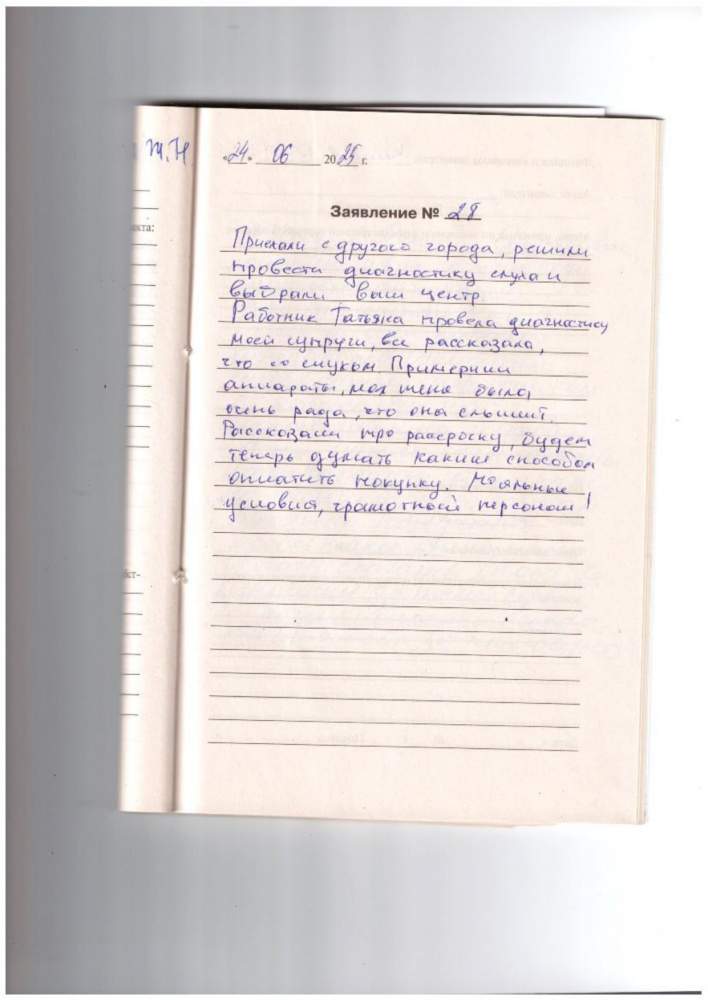 Т.Н.
«24» 06 2025 г.
кта:
Заявление № 28
Приехали с другого города, решили
провести диагностику слуха и
выбрали ваш центр
Работник Татьяна провела диагностику
моей супруги, все рассказала,
что со слухом. Примерили
аппараты, моя жена была
очень рада, что она слышит.
Рассказали про рассрочку, будем
теперь думать каким способом
оплатить покупку. Идеальные
условия, грамотный персонал!
кт-